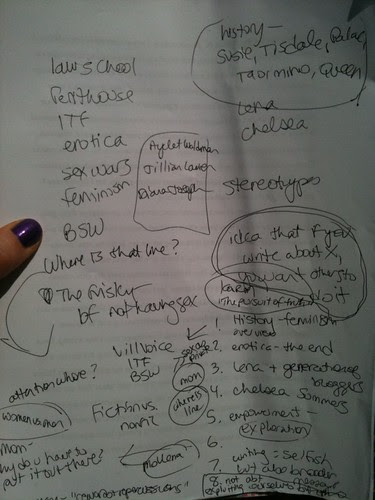 law school
Penthouse
ITF
erotica
sex wars
feminism
BSW
history –
Susie, Tisdale, Palac,
Taormino, Queen
Lena
Chelsea
Ayelet Waldman
Jillian Lauren
stereotypes
idea that if you
write about X,
you want others to
do it
Karen
Where is that line?
The frisky –
bf not having sex
Villvoice
ITF
BSW
mom
where is
line
attention whore?
Fiction vs.
nonfic?
mom –
why do you have to
put it out there?
1. History – feminism
2. erotica – the end
3. Lena + generational
bloggers
4. Chelsea Summers
5. empowerment –
exploration
6.
7. writing = selfish
but also broader
8. not abt
exploiting ourselves